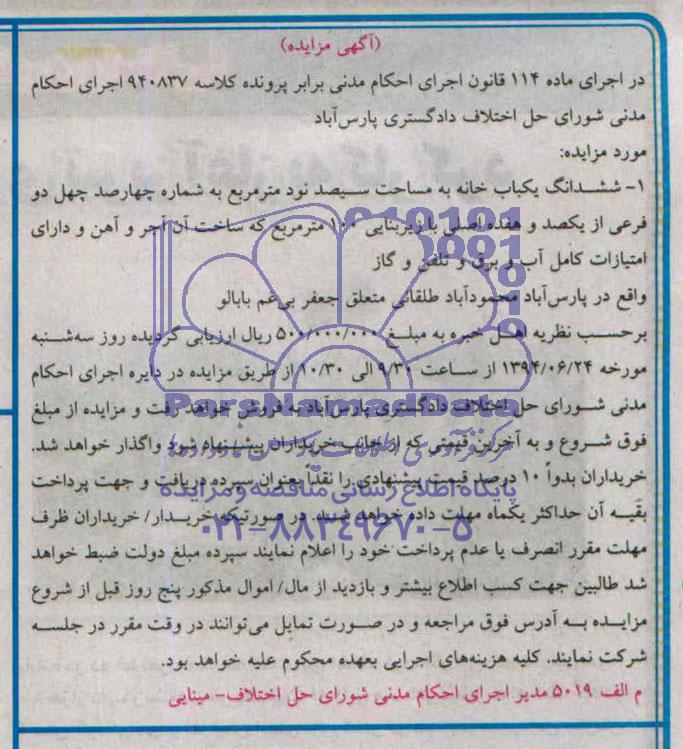 (آگهی مزایده)
در اجرای ماده ۱۱۴ قانون اجرای احکام مدنی برابر پرونده کلاسه ۹۴۰۸۳۷ اجرای احکام
مدنی شورای حل اختلاف دادگستری پارس‌آباد
مورد مزایده:
۱- ششدانگ یکباب خانه به مساحت سیصد نود مترمربع به شماره چهارصد چهل دو
فرعی از یکصد و هفده اصلی با زیربنایی ۱۰۰ مترمربع که ساخت آن آجر و آهن و دارای
امتیازات کامل آب و برق و تلفن و گاز
واقع در پارس‌آباد محمودآباد طلقانی متعلق جعفر بی‌غم بابالو
برحسب نظریه اهل خبره به مبلغ ۵۰۰/۰۰۰/۰۰۰ ریال ارزیابی گردیده روز سه‌شنبه
مورخه ۱۳۹۴/۰۶/۲۴ از ساعت ۹/۳۰ الی ۱۰/۳۰ از طریق مزایده در دایره اجرای احکام
ParsNamadData
مدنی شورای حل اختلاف دادگستری پارس‌آباد به فروش خواهد رفت و مزایده از مبلغ
فوق شروع و به آخرین قیمتی که از جانب خریداران پیشنهاد شود واگذار خواهد شد.
خریداران بدواً ۱۰ درصد قیمت پیشنهادی را نقداً بعنوان سپرده دریافت و جهت پرداخت
پایگاه اطلاع رسانی مناقصه و مزایده
بقیه آن حداکثر یکماه مهلت داده خواهد شد. در صورتیکه خریدار/ خریداران ظرف
۰۲۱-۸۸۳۴۹۶۷۰-۵
مهلت مقرر انصرف یا عدم پرداخت خود را اعلام نمایند سپرده مبلغ دولت ضبط خواهد
شد طالبین جهت کسب اطلاع بیشتر و بازدید از مال/ اموال مذکور پنج روز قبل از شروع
مزایده به آدرس فوق مراجعه و در صورت تمایل می‌توانند در وقت مقرر در جلسه
شرکت نمایند. کلیه هزینه‌های اجرایی بعهده محکوم علیه خواهد بود.
م الف ۵۰۱۹ مدیر اجرای احکام مدنی شورای حل اختلاف- مینایی